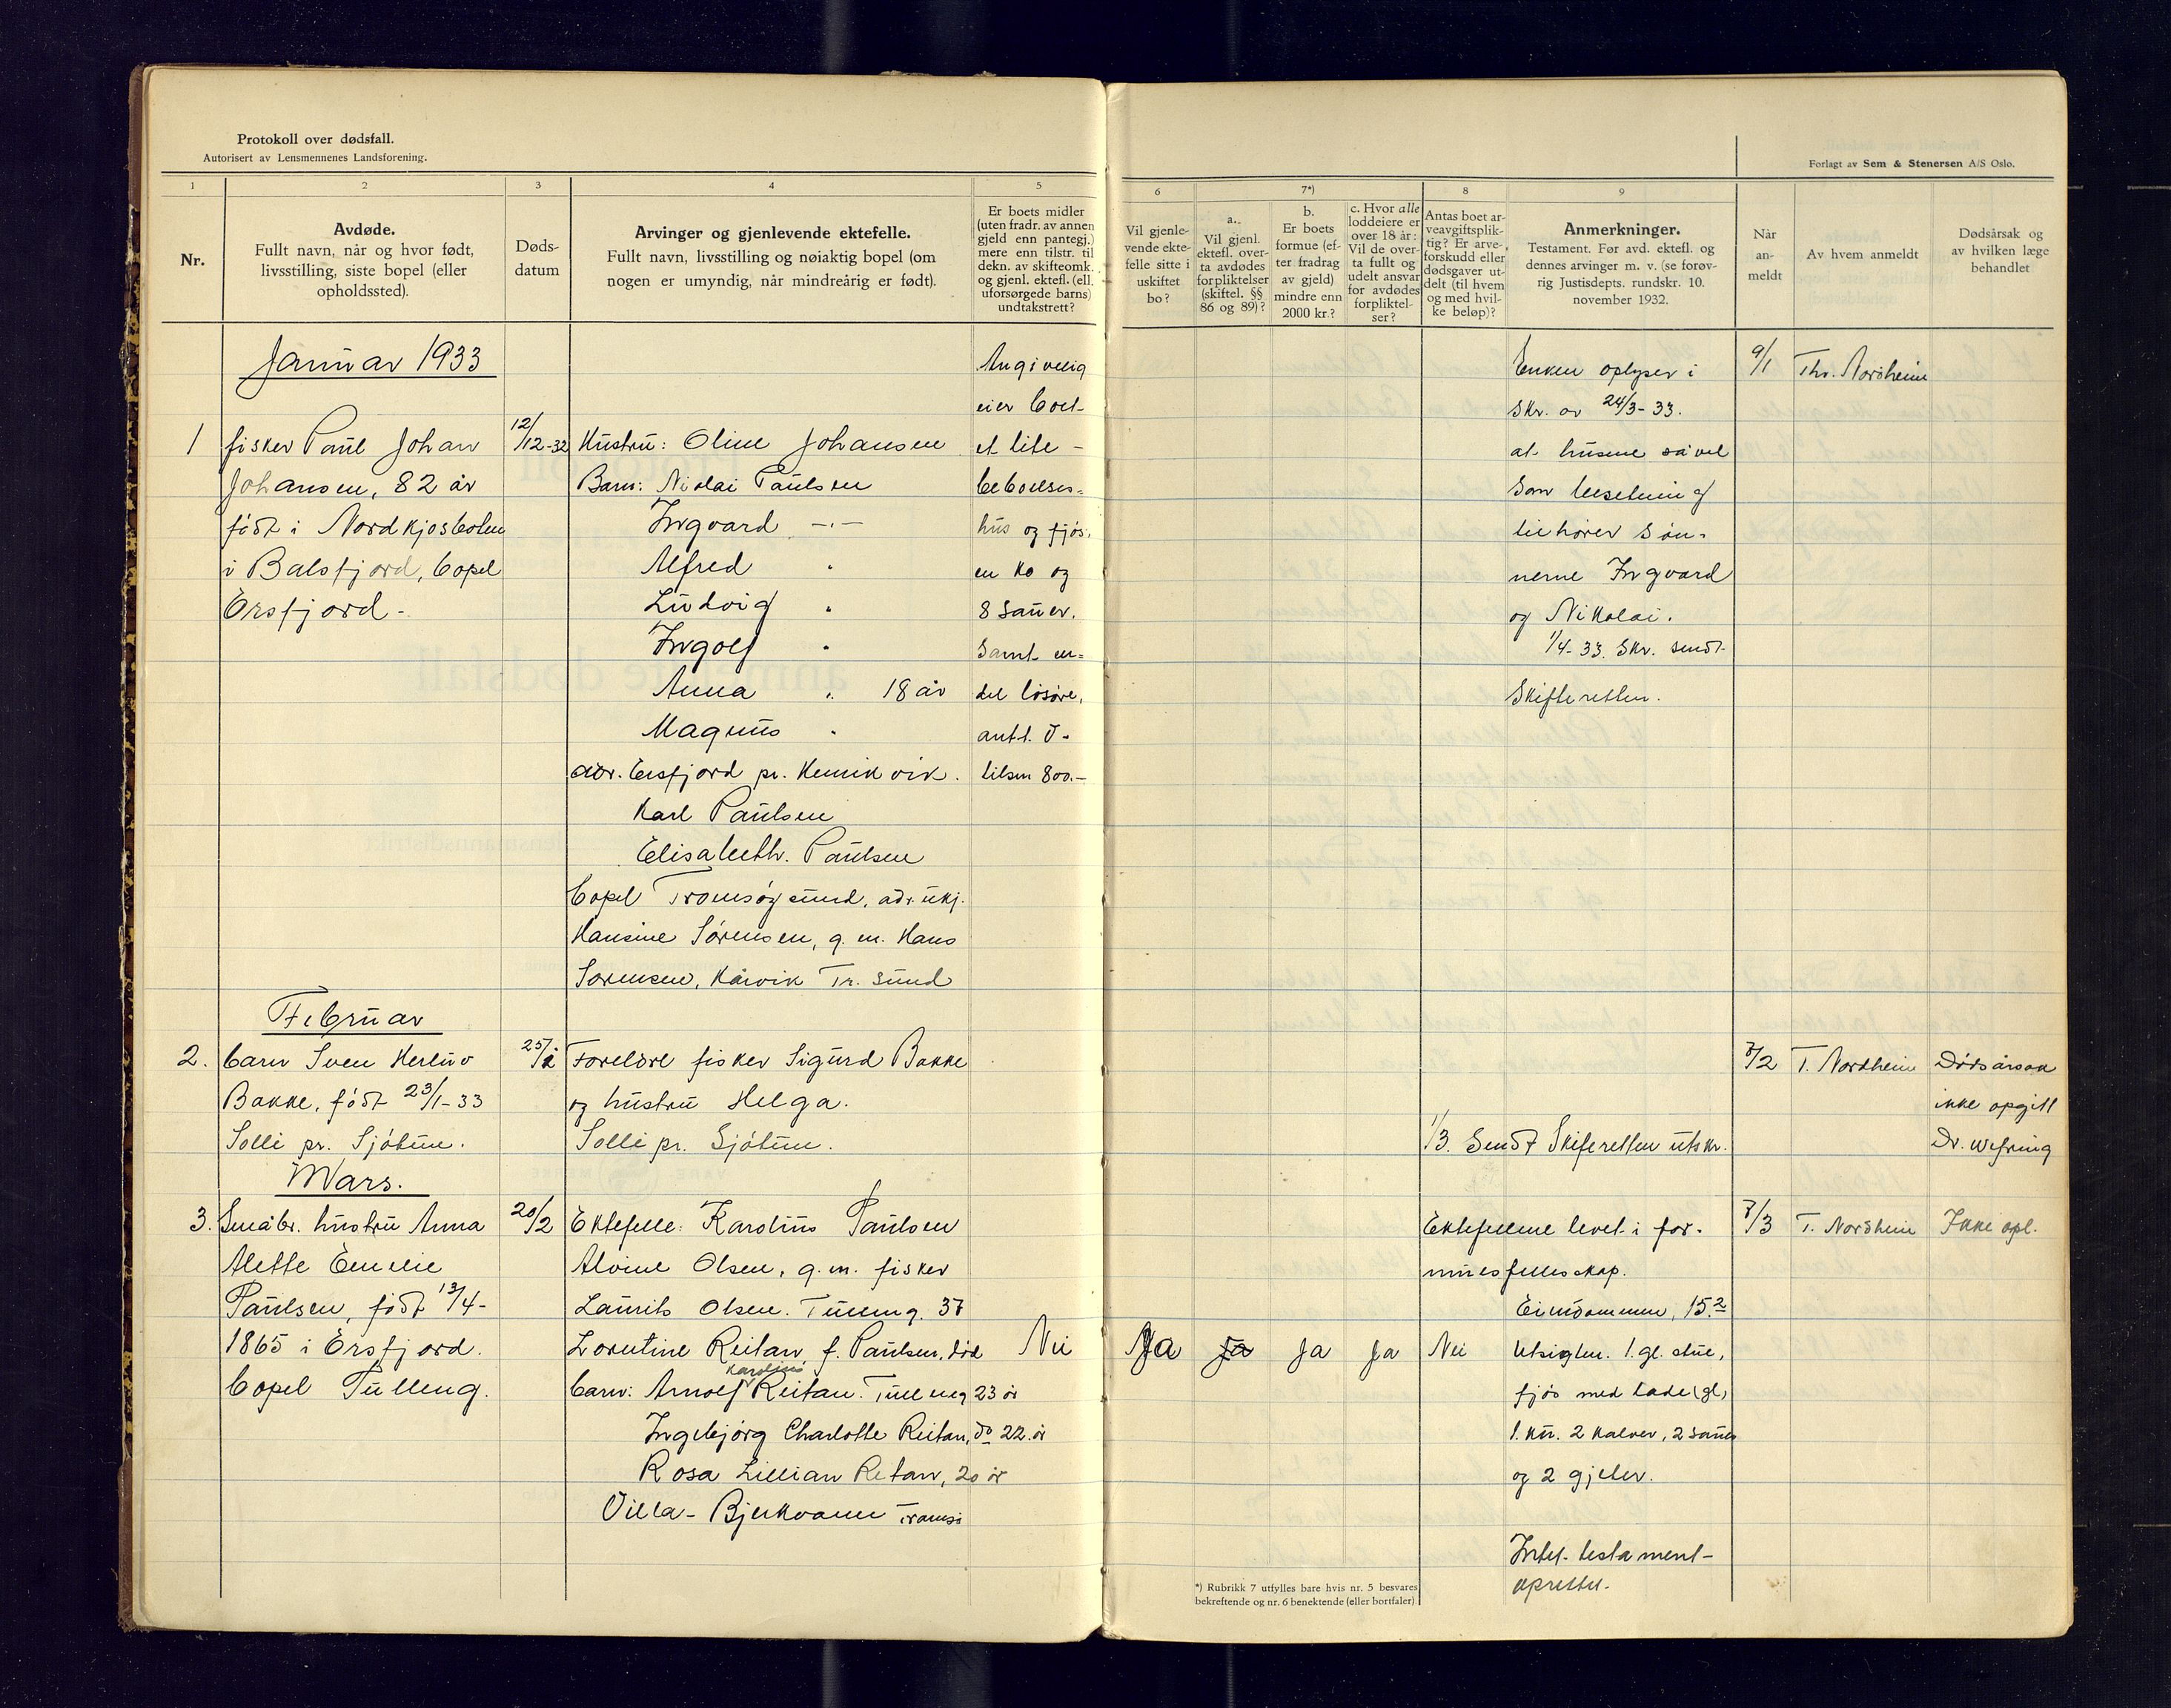 Protokoll over dødsfall.
Autorisert av Lensmennenes Landsforening.
Forlagt av Sem & Stenersen A/S Oslo.
1
2
3
4
5
6
7*)
8
9
Nr.
Avdøde.
Fullt navn, når og hvor født,
livsstilling, siste bopel (eller
opholdssted).
Døds-
datum
Arvinger og gjenlevende ektefelle.
Fullt navn, livsstilling og nøiaktig bopel (om
nogen er umyndig, når mindreårig er født).
Er boets midler
(uten fradr. av annen
gjeld enn pantegj.)
mere enn tilstr. til
dekn. av skifteomk.
og gjenl. ektefl. (ell.
uforsørgede barns)
undtakstrett?
Vil gjenle-
vende ekte-
felle sitte i
uskiftet
bo?
a.
Vil gjenl.
ektefl. over-
ta avdødes
forpliktelser
(skiftel. §§
86 og 89)?
b.
Er boets
formue (ef-
ter fradrag
av gjeld)
mindre enn
2000 kr.?
c. Hvor alle
loddeiere er
over 18 år:
Vil de over-
ta fullt og
udelt ansvar
for avdødes
forpliktel-
ser?
Antas boet ar-
veavgiftsplik-
tig? Er arve-
forskudd eller
dødsgaver ut-
delt (til hvem
og med hvil-
ke beløp)?
Anmerkninger.
Testament. Før avd. ektefl. og
dennes arvinger m. v. (se forøv-
rig Justisdepts. rundskr. 10.
november 1932.
Når
an-
meldt
Av hvem anmeldt
Dødsårsak og
av hvilken læge
behandlet
Januar 1933
1
fisker Paul Johan
Johansen, 82 år
født i Nordkjosbotn
i Balsfjord, bopel
Ersfjord-
12/12-32
Hustru: Oline Johansen
Barn: Nikolai Paulsen
Ingvard -"-
Alfred "
Ludvig "
Ingolf "
Anna " 18 år
Magnus "
adr. Ersfjord pr. Kvenvik.
Karl Paulsen
Elisabeth. Paulsen
bopel Tromsøysund, adr. ukj.
Hansine Sørensen, g. m. Hans
Sørensen, Kårvik Tr. sund
Angivelig
eier boet-
et lite
beboelses=
hus og fjøs,
en ko og
8 sauer.
samt en=
del løsøre,
antt. v.
tilsm 800.-
Enken oplyser i
skr. av 24/3-33.
at husene såvel
som besetning
tilhører søn-
nerne Ingvard
og Nikolai.
1/4-33. Skr. sendt
Skifteretten.
9/1
Thr. Nordheim
Februar
2.
barn Sven Herluv
Bakke, født 23/1-33
Solli pr. Sjøtun.
25/1
Foreldre fisker Sigurd Bakke
og hustru Helga.
Solli pr. Sjøtun.
1/3. Sendt Skifteretten utskr.
7/2
T. Nordheim
Dødsårsak
ikke opgitt
Dr. Wefring
Mars.
3.
Småbr. hustru Anna
Alette Emilie
Paulsen, født 13/4-
1865 i Ersfjord.
bopel Tulleng.
20/2
Ektefelle: Karolius Paulsen
Alvine Olsen, g.m. fisker
Laurits Olsen. Tulleng. 37
Lorentine Reitan f. Paulsen, død
Karolius
barn: Arnolf Reitan. Tulleng 23 år
Ingebjørg Charlotte Reitan, do 22. år
Rosa Lillian Retan, 20 år
Villa- Bjerkvann Tromsø
Nei
Ja
Ja
Ja
Ja
Nei
Ektefellene levet i for-
muesfellesskap.
Eiendommen, 15.2
Utsigten. 1. gl. stue,
fjøs med lade (gl)
1. ku. 2 kalver, 2 sauer
og 2 gjeter.
Intet testament-
oprettet.
8/3
T. Nordheim
Ikke opl.
*) Rubrikk 7 utfylles bare hvis nr. 5 besvares
bekreftende og nr. 6 benektende (eller bortfaler)